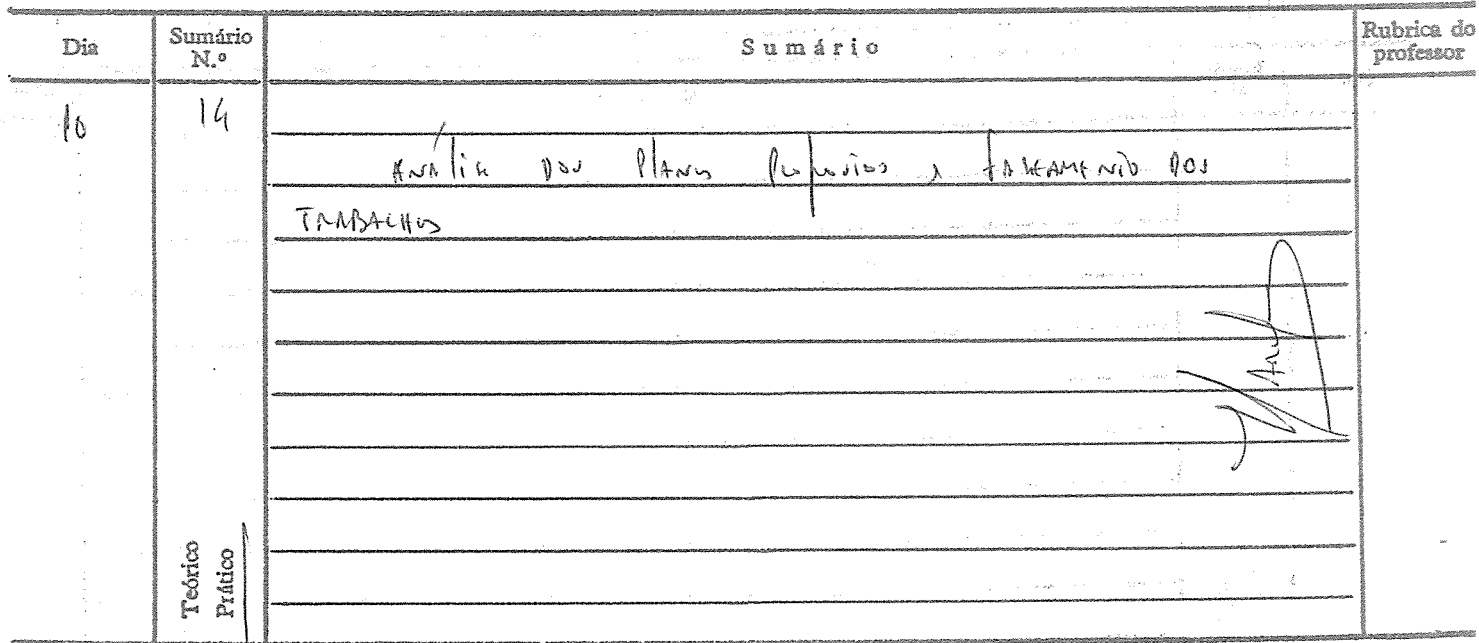 Dia
Sumário
N.º
Sumário
Rubrica do
professor
10
14
Análise dos Planos Propostos e
dos
TRABALHOS
Teórico
Prático